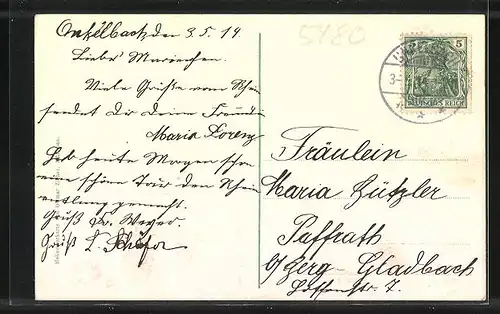 den 3.5.19.
Liebes Mariechen.
Viele Grüsse vom Rhein
sendet Dir Deine Freundin
Maria Lorenz
Hab heute Morgen schon
eine schöne Tour den Rhein
entlang gemacht.
Gruß Fr. Weyer.
Gruß L. Schäfer
5480
5
DEUTSCHES REICH
Fräulein
Maria Hützler
Paffrath
b/Berg-Gladbach